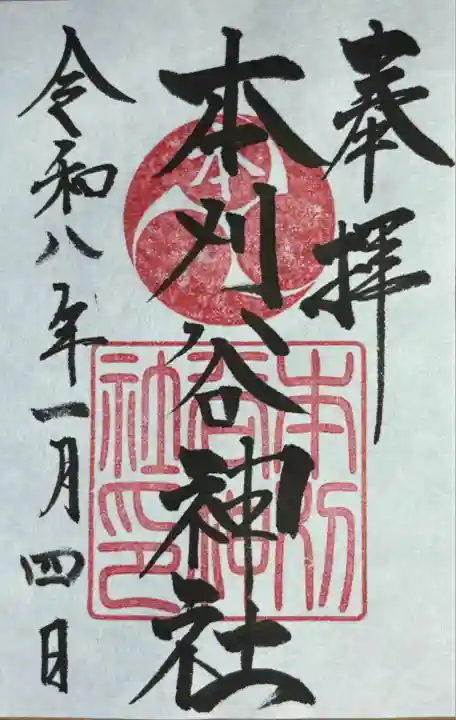 奉拝
本刈谷神社
令和八年一月四日
本刈
谷神
社印